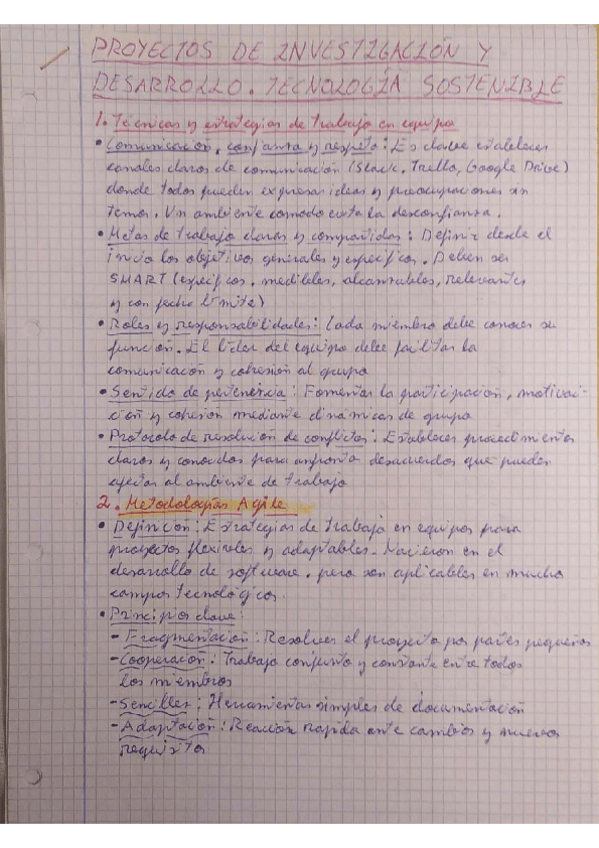 PROYECTOS DE INVESTIGACIÓN Y
DESARROLLO. TECNOLOGÍA SOSTENIBLE
1. Técnicas y estrategias de trabajo en equipo
• Comunicación, confianza y respeto: Es clave establecer
canales claros de comunicación (Slack, Trello, Google Drive)
donde todos pueden expresar ideas y preocupaciones sin
temor. Un ambiente comodo evita la desconfianza.
• Metas de trabajo claras y compartidas: Definir desde el
inicio los objetivos generales y específicos. Deben ser
SMART (específicos, medibles, alcanzables, relevantes
y con fecha límite)
• Roles y responsabilidades: Cada miembro debe conocer su
función. El líder del equipo debe facilitar la
comunicación y cohesión al grupo
• Sentido de pertenencia: Fomentar la participación, motivac-
ción y cohesión mediante dinámicas de grupo
• Protocolo de resolución de conflictos: Establecer procedimientos
claros y conocidos para afrontar desacuerdos que pueden
afectar al ambiente de trabajo
2. Metodologías Agile
• Definición: Estrategias de trabajo en equipos para
proyectos flexibles y adaptables. Nacieron en el
desarrollo de software, pero son aplicables en muchos
campos tecnológicos.
• Principios clave:
- Fragmentación: Resolver el proyecto por partes pequeñas
- Cooperación: Trabajo conjunto y constante entre todos
los miembros
- Sencillez: Herramientas simples de documentación
- Adaptación: Reacción rápida ante cambios y nuevos
requisitos